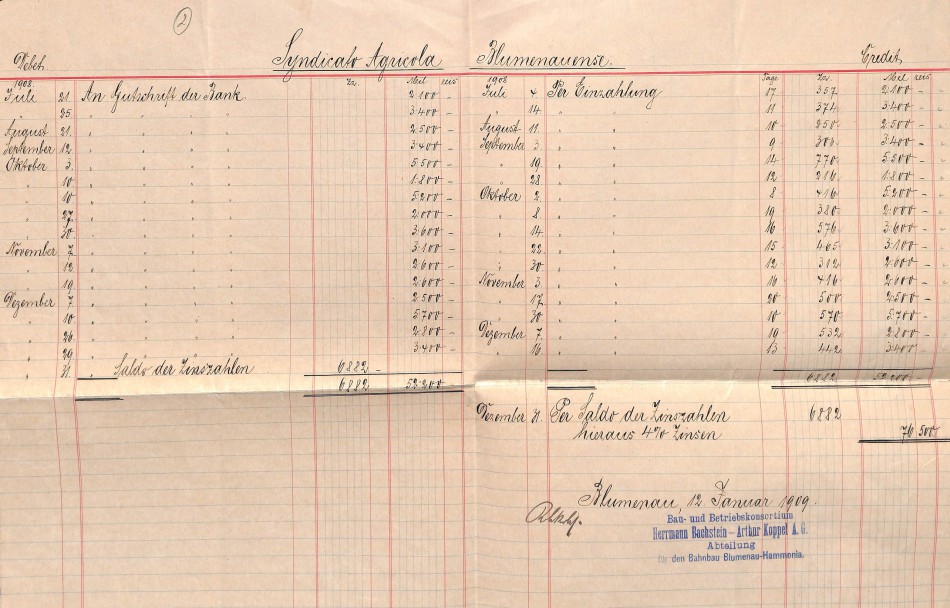 2
Syndicato Agricola Blumenauense.
Debet. Credit
1908. Zz. Mil reis 1908 Tage Zz. Mil reis
Juli 21. An Gutschrift der Bank. 2.100 – Juli 4 Per Einzahlung 17 357 2.100 –
„ 25. „ „ „ „ 3.400 – „ 14 „ „ 11 374 3.400 –
August 21. „ „ „ „ 2.500 – August 11. „ „ 10 250 2.500 –
September 12. „ „ „ „ 3.400 – September 3. „ „ 9 306 3.400 –
Oktober 3. „ „ „ „ 5.500 – „ 19. „ „ 14 770 5.500 –
„ 10 „ „ „ „ 1.800 – „ 28. „ „ 12 216 1.800 –
„ 10 „ „ „ „ 5.200 – Oktober 2. „ „ 8 416 5.200 –
„ 27. „ „ „ „ 2.000 – „ 8 „ „ 19 380 2.000 –
„ 30 „ „ „ „ 3.600 – „ 14 „ „ 16 576 3.600 –
November 7. „ „ „ „ 3.100 – „ 22. „ „ 15 465 3.100 –
„ 12 „ „ „ „ 2.600 – „ 30 „ „ 12 312 2.600 –
„ 19 „ „ „ „ 2.600 – November 3. „ „ 16 416 2.600 –
Dezember 7. „ „ „ „ 2.500 – „ 17. „ „ 20 500 2.500 –
„ 10 „ „ „ „ 5.700 – „ 30 „ „ 10 570 5.700 –
„ 26. „ „ „ „ 2.800 – Dezember 7. „ „ 19 532 2.800 –
„ 29. „ „ „ „ 3.400 – „ 16. „ „ 13 442 3.400 –
„ 31. „ Saldo der Zinszahlen 6882 –
6882 52.200 – 6882 52.200 –
Dezember 31. Per Saldo der Zinszahlen 6882
hieraus 4% Zinsen 76.500
Blumenau, 12. Januar 1909.
Bau- und Betriebskonsortium
Herrmann Bachstein – Arthur Koppel A. G.
Abteilung
für den Bahnbau Blumenau-Hammonia.